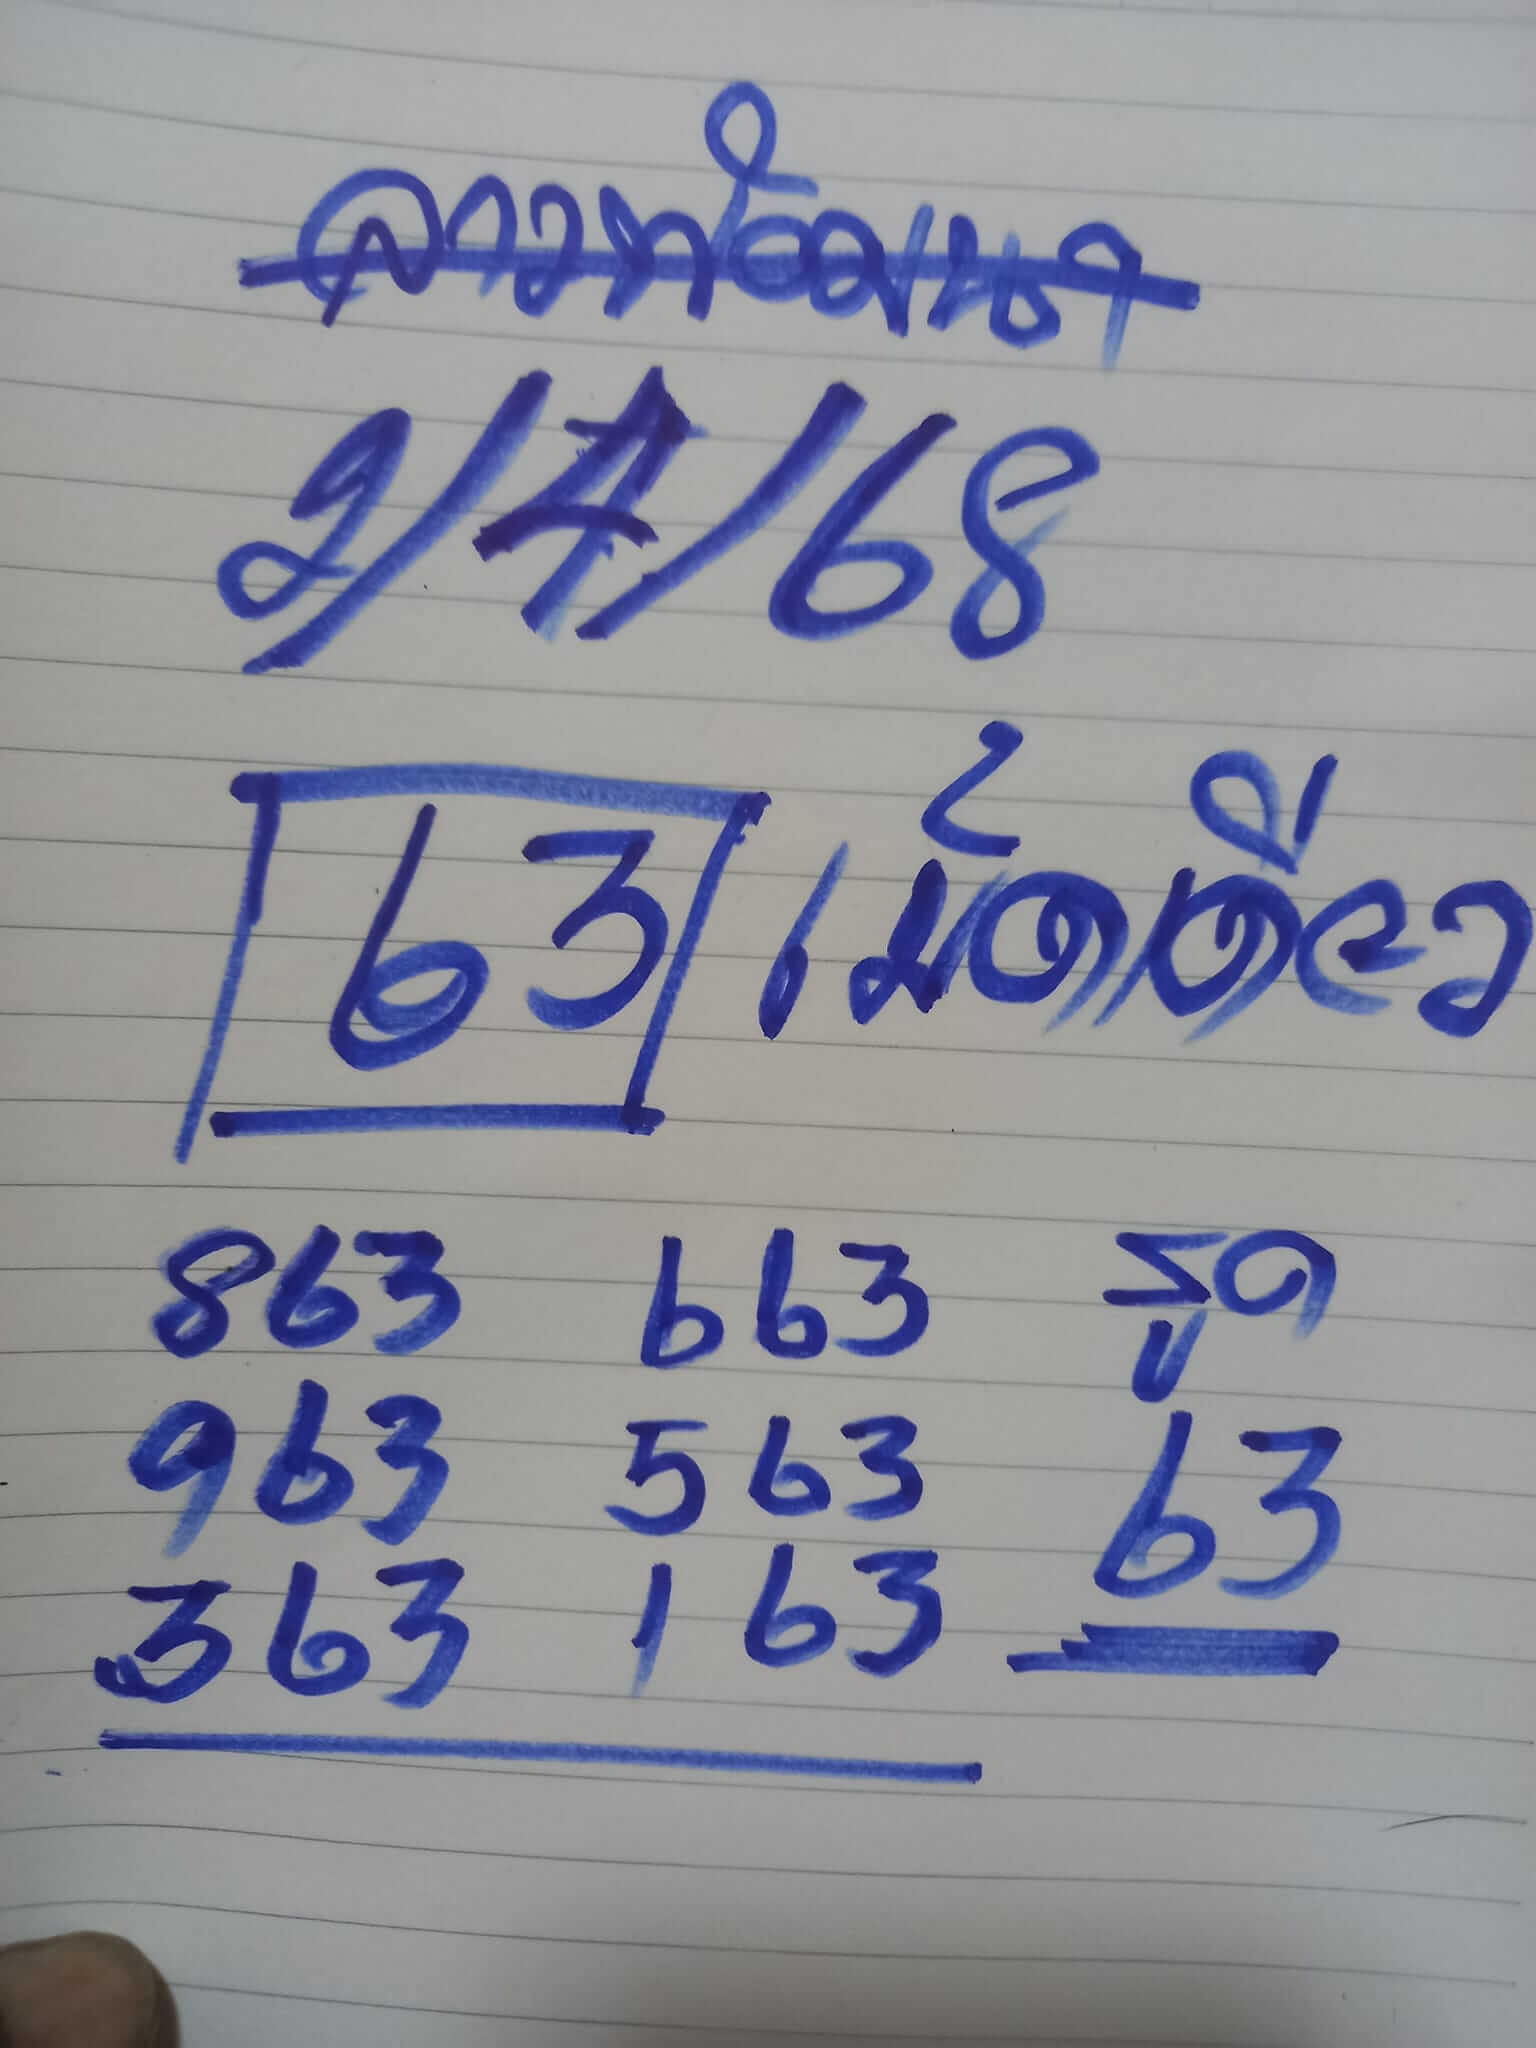 ลาวพัฒนา
2/4/68
63 เม้ดเดียว
863 663 รูด
963 563 63
363 163